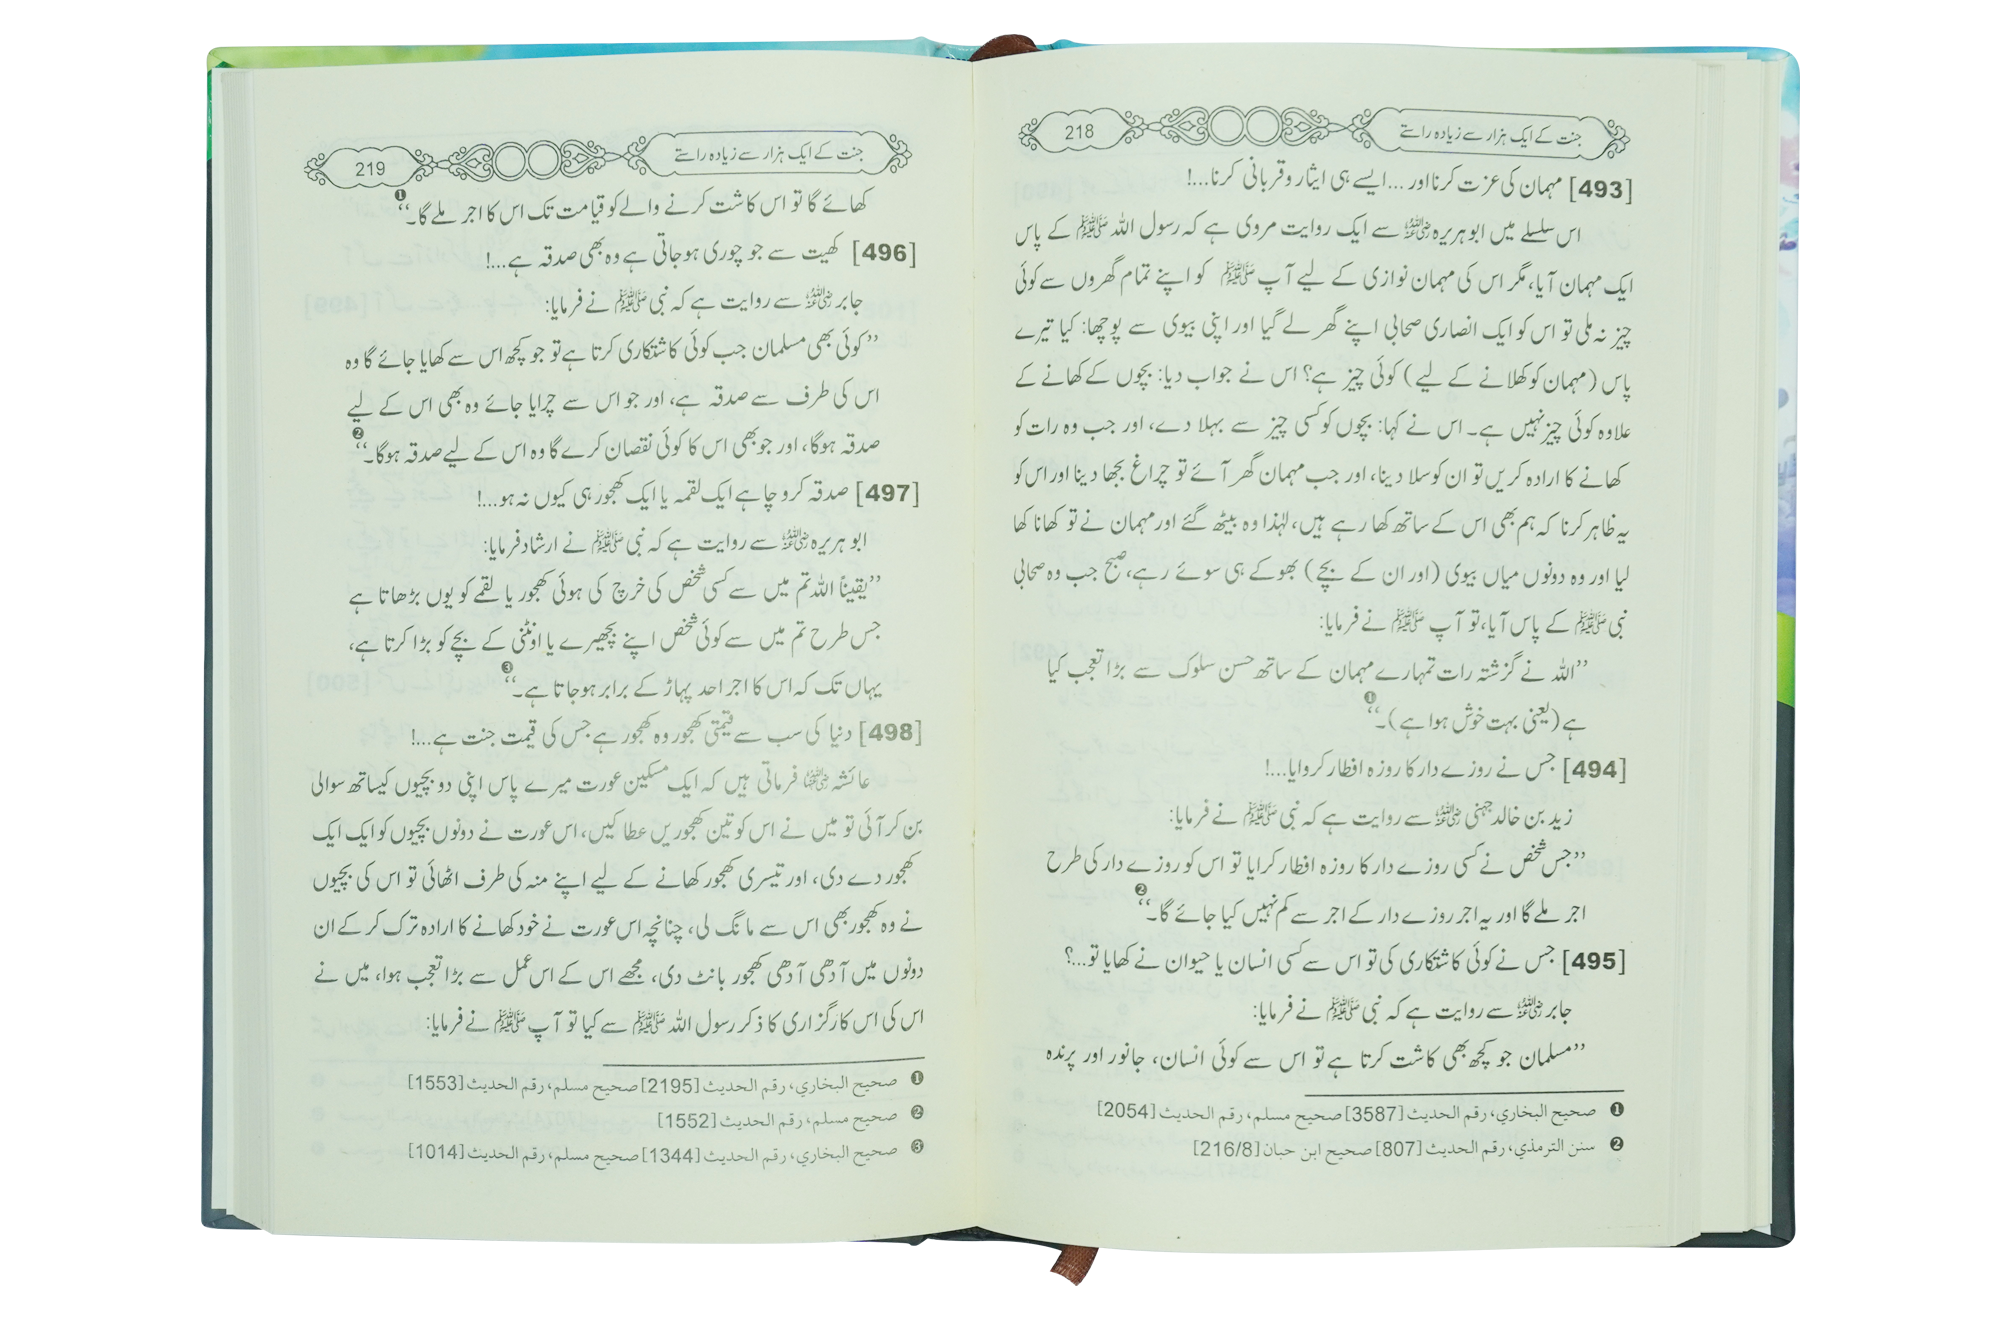 جنت کے ایک ہزار سے زیادہ راستے 218
[493] مہمان کی عزت کرنا اور ... ایسے ہی ایثار و قربانی کرنا...!
اس سلسلے میں ابوہریرہ رضی اللہ عنہ سے ایک روایت مروی ہے کہ رسول اللہ ﷺ کے پاس
ایک مہمان آیا، مگر اس کی مہمان نوازی کے لیے آپ ﷺ کو اپنے تمام گھروں سے کوئی
چیز نہ ملی تو اس کو ایک انصاری صحابی اپنے گھر لے گیا اور اپنی بیوی سے پوچھا: کیا تیرے
پاس (مہمان کو کھلانے کے لیے) کوئی چیز ہے؟ اس نے جواب دیا: بچوں کے کھانے کے
علاوہ کوئی چیز نہیں ہے۔ اس نے کہا: بچوں کو کسی چیز سے بہلا دے، اور جب وہ رات کو
کھانے کا ارادہ کریں تو ان کو سلا دینا، اور جب مہمان گھر آئے تو چراغ بجھا دینا اور اس کو
یہ ظاہر کرنا کہ ہم بھی اس کے ساتھ کھا رہے ہیں، لہٰذا وہ بیٹھ گئے اور مہمان نے تو کھانا کھا
لیا اور وہ دونوں میاں بیوی (اور ان کے بچے) بھوکے ہی سوئے رہے، صبح جب وہ صحابی
نبی ﷺ کے پاس آیا، تو آپ ﷺ نے فرمایا:
’’اللہ نے گزشتہ رات تمہارے مہمان کے ساتھ حسن سلوک سے بڑا تعجب کیا
ہے (یعنی بہت خوش ہوا ہے)۔‘‘❶
[494] جس نے روزے دار کا روزہ افطار کروایا...!
زید بن خالد جہنی رضی اللہ عنہ سے روایت ہے کہ نبی ﷺ نے فرمایا:
’’جس شخص نے کسی روزے دار کا روزہ افطار کرایا تو اس کو روزے دار کی طرح
اجر ملے گا اور یہ اجر روزے دار کے اجر سے کم نہیں کیا جائے گا۔‘‘❷
[495] جس نے کوئی کاشتکاری کی تو اس سے کسی انسان یا حیوان نے کھایا تو...؟
جابر رضی اللہ عنہ سے روایت ہے کہ نبی ﷺ نے فرمایا:
’’مسلمان جو کچھ بھی کاشت کرتا ہے تو اس سے کوئی انسان، جانور اور پرندہ
❶ صحيح البخاري، رقم الحديث [3587] صحيح مسلم، رقم الحديث [2054]
❷ سنن الترمذي، رقم الحديث [807] صحيح ابن حبان [216/8]
جنت کے ایک ہزار سے زیادہ راستے 219
کھائے گا تو اس کاشت کرنے والے کو قیامت تک اس کا اجر ملے گا۔‘‘❶
[496] کھیت سے جو چوری ہو جاتی ہے وہ بھی صدقہ ہے...!
جابر رضی اللہ عنہ سے روایت ہے کہ نبی ﷺ نے فرمایا:
’’کوئی بھی مسلمان جب کوئی کاشتکاری کرتا ہے تو جو کچھ اس سے کھایا جائے گا وہ
اس کی طرف سے صدقہ ہے، اور جو اس سے چرایا جائے وہ بھی اس کے لیے
صدقہ ہوگا، اور جو بھی اس کا کوئی نقصان کرے گا وہ اس کے لیے صدقہ ہوگا۔‘‘❷
[497] صدقہ کرو چاہے ایک لقمہ یا ایک کھجور ہی کیوں نہ ہو...!
ابو ہریرہ رضی اللہ عنہ سے روایت ہے کہ نبی ﷺ نے ارشاد فرمایا:
’’یقیناً اللہ تم میں سے کسی شخص کی خرچ کی ہوئی کھجور یا لقمے کو یوں بڑھاتا ہے
جس طرح تم میں سے کوئی شخص اپنے بچھیرے یا اونٹنی کے بچے کو بڑا کرتا ہے،
یہاں تک کہ اس کا اجر احد پہاڑ کے برابر ہو جاتا ہے۔‘‘❸
[498] دنیا کی سب سے قیمتی کھجور وہ کھجور ہے جس کی قیمت جنت ہے...!
عائشہ رضی اللہ عنہا فرماتی ہیں کہ ایک مسکین عورت میرے پاس اپنی دو بچیوں کیساتھ سوالی
بن کر آئی تو میں نے اس کو تین کھجوریں عطا کیں، اس عورت نے دونوں بچیوں کو ایک ایک
کھجور دے دی، اور تیسری کھجور کھانے کے لیے اپنے منہ کی طرف اٹھائی تو اس کی بچیوں
نے وہ کھجور بھی اس سے مانگ لی، چنانچہ اس عورت نے خود کھانے کا ارادہ ترک کر کے ان
دونوں میں آدھی آدھی کھجور بانٹ دی، مجھے اس کے اس عمل سے بڑا تعجب ہوا، میں نے
اس کی اس کارگزاری کا ذکر رسول اللہ ﷺ سے کیا تو آپ ﷺ نے فرمایا:
❶ صحيح البخاري، رقم الحديث [2195] صحيح مسلم، رقم الحديث [1553]
❷ صحيح مسلم، رقم الحديث [1552]
❸ صحيح البخاري، رقم الحديث [1344] صحيح مسلم، رقم الحديث [1014]